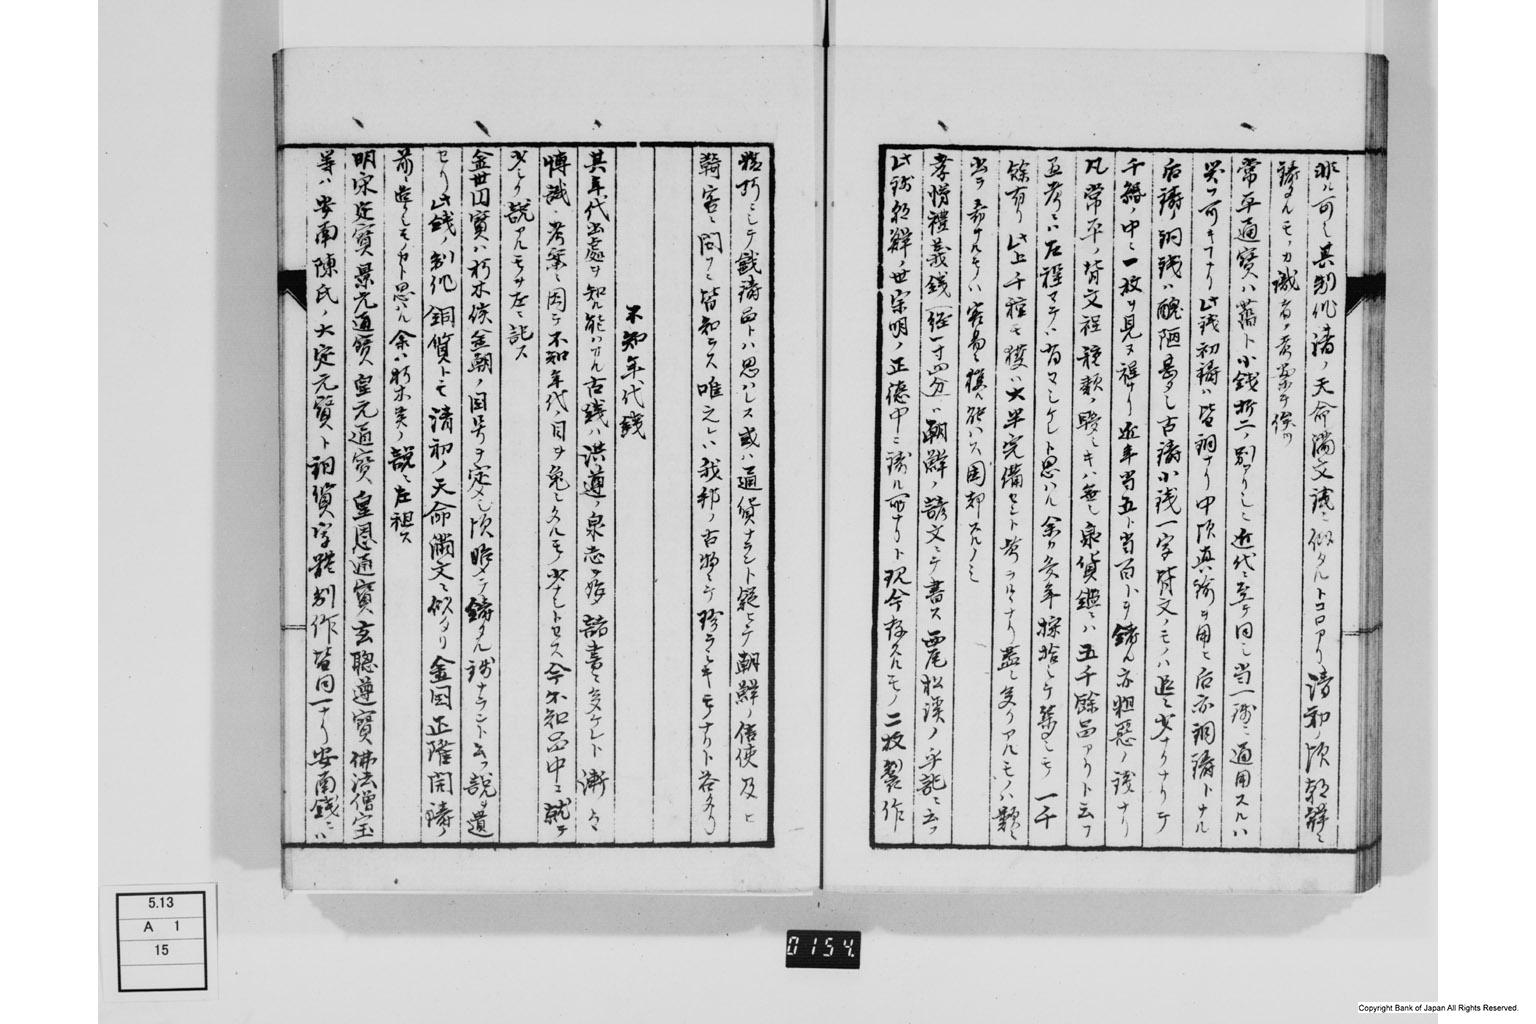 非ル可シ其制作清ノ天命満文銭ニ似タルトコロアリ清初ノ頃朝鮮ニ
鋳タルモノカ識者ノ考案ヲ俟ツ
常平通寳ハ舊ト小銭折二ノ別アリシニ近代ニ至テ同シ当一銭ニ通用スルハ
笑フ可キ也此銭初鋳ハ皆銅ナリ中頃真鍮ヲ用ヒ后亦銅鋳トナル
后鋳ノ銅銭ハ醜陋甚タシ古鋳小銭一字背文ノモノハ迫ニ少ナリナリテ
千緡ノ中ニ一枚ヲ見ヌ程ナリ近年当五ト当百トヲ鋳ル亦粗惡ノ銭ナリ
凡常平ノ背文程種類ノ夥シキハ無シ泉貨鑑ニハ五千餘品アリト云フ
孟考ニハ左程マテハ有マシケレト思ハル余カ多年採拾シテ集ルモ一千
餘有リ此上千種モ獲ハ大半完備セント考ラルヽナリ蓋シ多クアルモノハ數々
出ヲ希ナルモノハ容易ニ獲ル能ハス困却スルノミ
孝悌禮義銭(径一寸四分)ハ朝鮮ノ諺文ニテ書ス西尾松渓ノ手記ニ云フ
此銭朝鮮ノ世宗明ノ正徳中ニ鋳ル所ナリト現今存スルモノ二枚製作
精巧ニシテ戯鋳品トハ思ハレス或ハ通貨ナラント疑ヒテ朝鮮ノ信使及ヒ
韓客ニ問フニ皆知ラス唯之レハ我邦ノ古物ニテ珍ラシキモノナリト答タリ
不知年代銭
其年代出處ヲ知ル能ハサル古銭ハ洪遵ノ泉志ヲ始諸書ニ多ケレト漸々ニ
博識ノ考案ニ因テ不知年代ノ目ヲ免シタルモノ少ナシトセス今不知品中ニ就テ
少シク説アルモノヲ左ニ記ス
金世円寳ハ朽木侯金朝ノ国号ヲ定メシ頃昉メテ鋳タル銭ナラント云フ説ヲ遺
セリ此銭ノ制作銅質トモ清初ノ天命満文ニ似タリ金国正隆開鋳ノ
前ニ造レシモノカト思ハル余ハ朽木侯ノ説ニ左袒ス
明宋定寳景元通寳皇元通寳皇恩通寳玄聰遵寳佛法僧宝
等ハ安南陳氏ノ大定元寳ト銅貨字體制作皆同一ナリ安南銭ニハ
5.13
A 1
15
0154.
Copyright Bank of Japan All Rights Reserved.